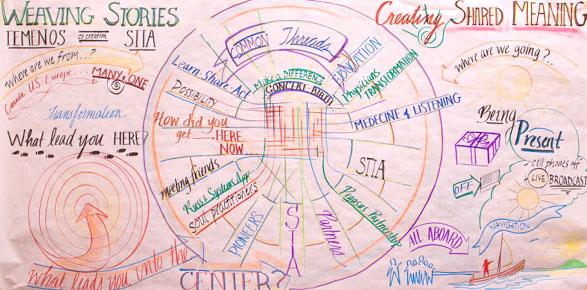 WEAVING STORIES
TEMENOS co creation SIIA
where are we from..?
Canada U.S. Europe... MANY & ONE
Transformation
What lead you HERE?
What leads you into the
CENTER?
COMMON Threads
Learn Share Act
Make a DIFFERENCE
EDUCATION
CONCERT BUILD
Physicians TRANSFORMATION
POSSIBILITY
How did you
get HERE
NOW
MEDECINE & LISTENING
meeting friends
SIIA
Russ & Systems App
Soul practitioners
Pegasus Partnership
PIONEERS
SIIA
Partners
Creating SHARED MEANING
where are we going?..
Being
Present
cell phones off
OFF
LIVE BROADCAST
NAVIGATION
ALL ABOARD